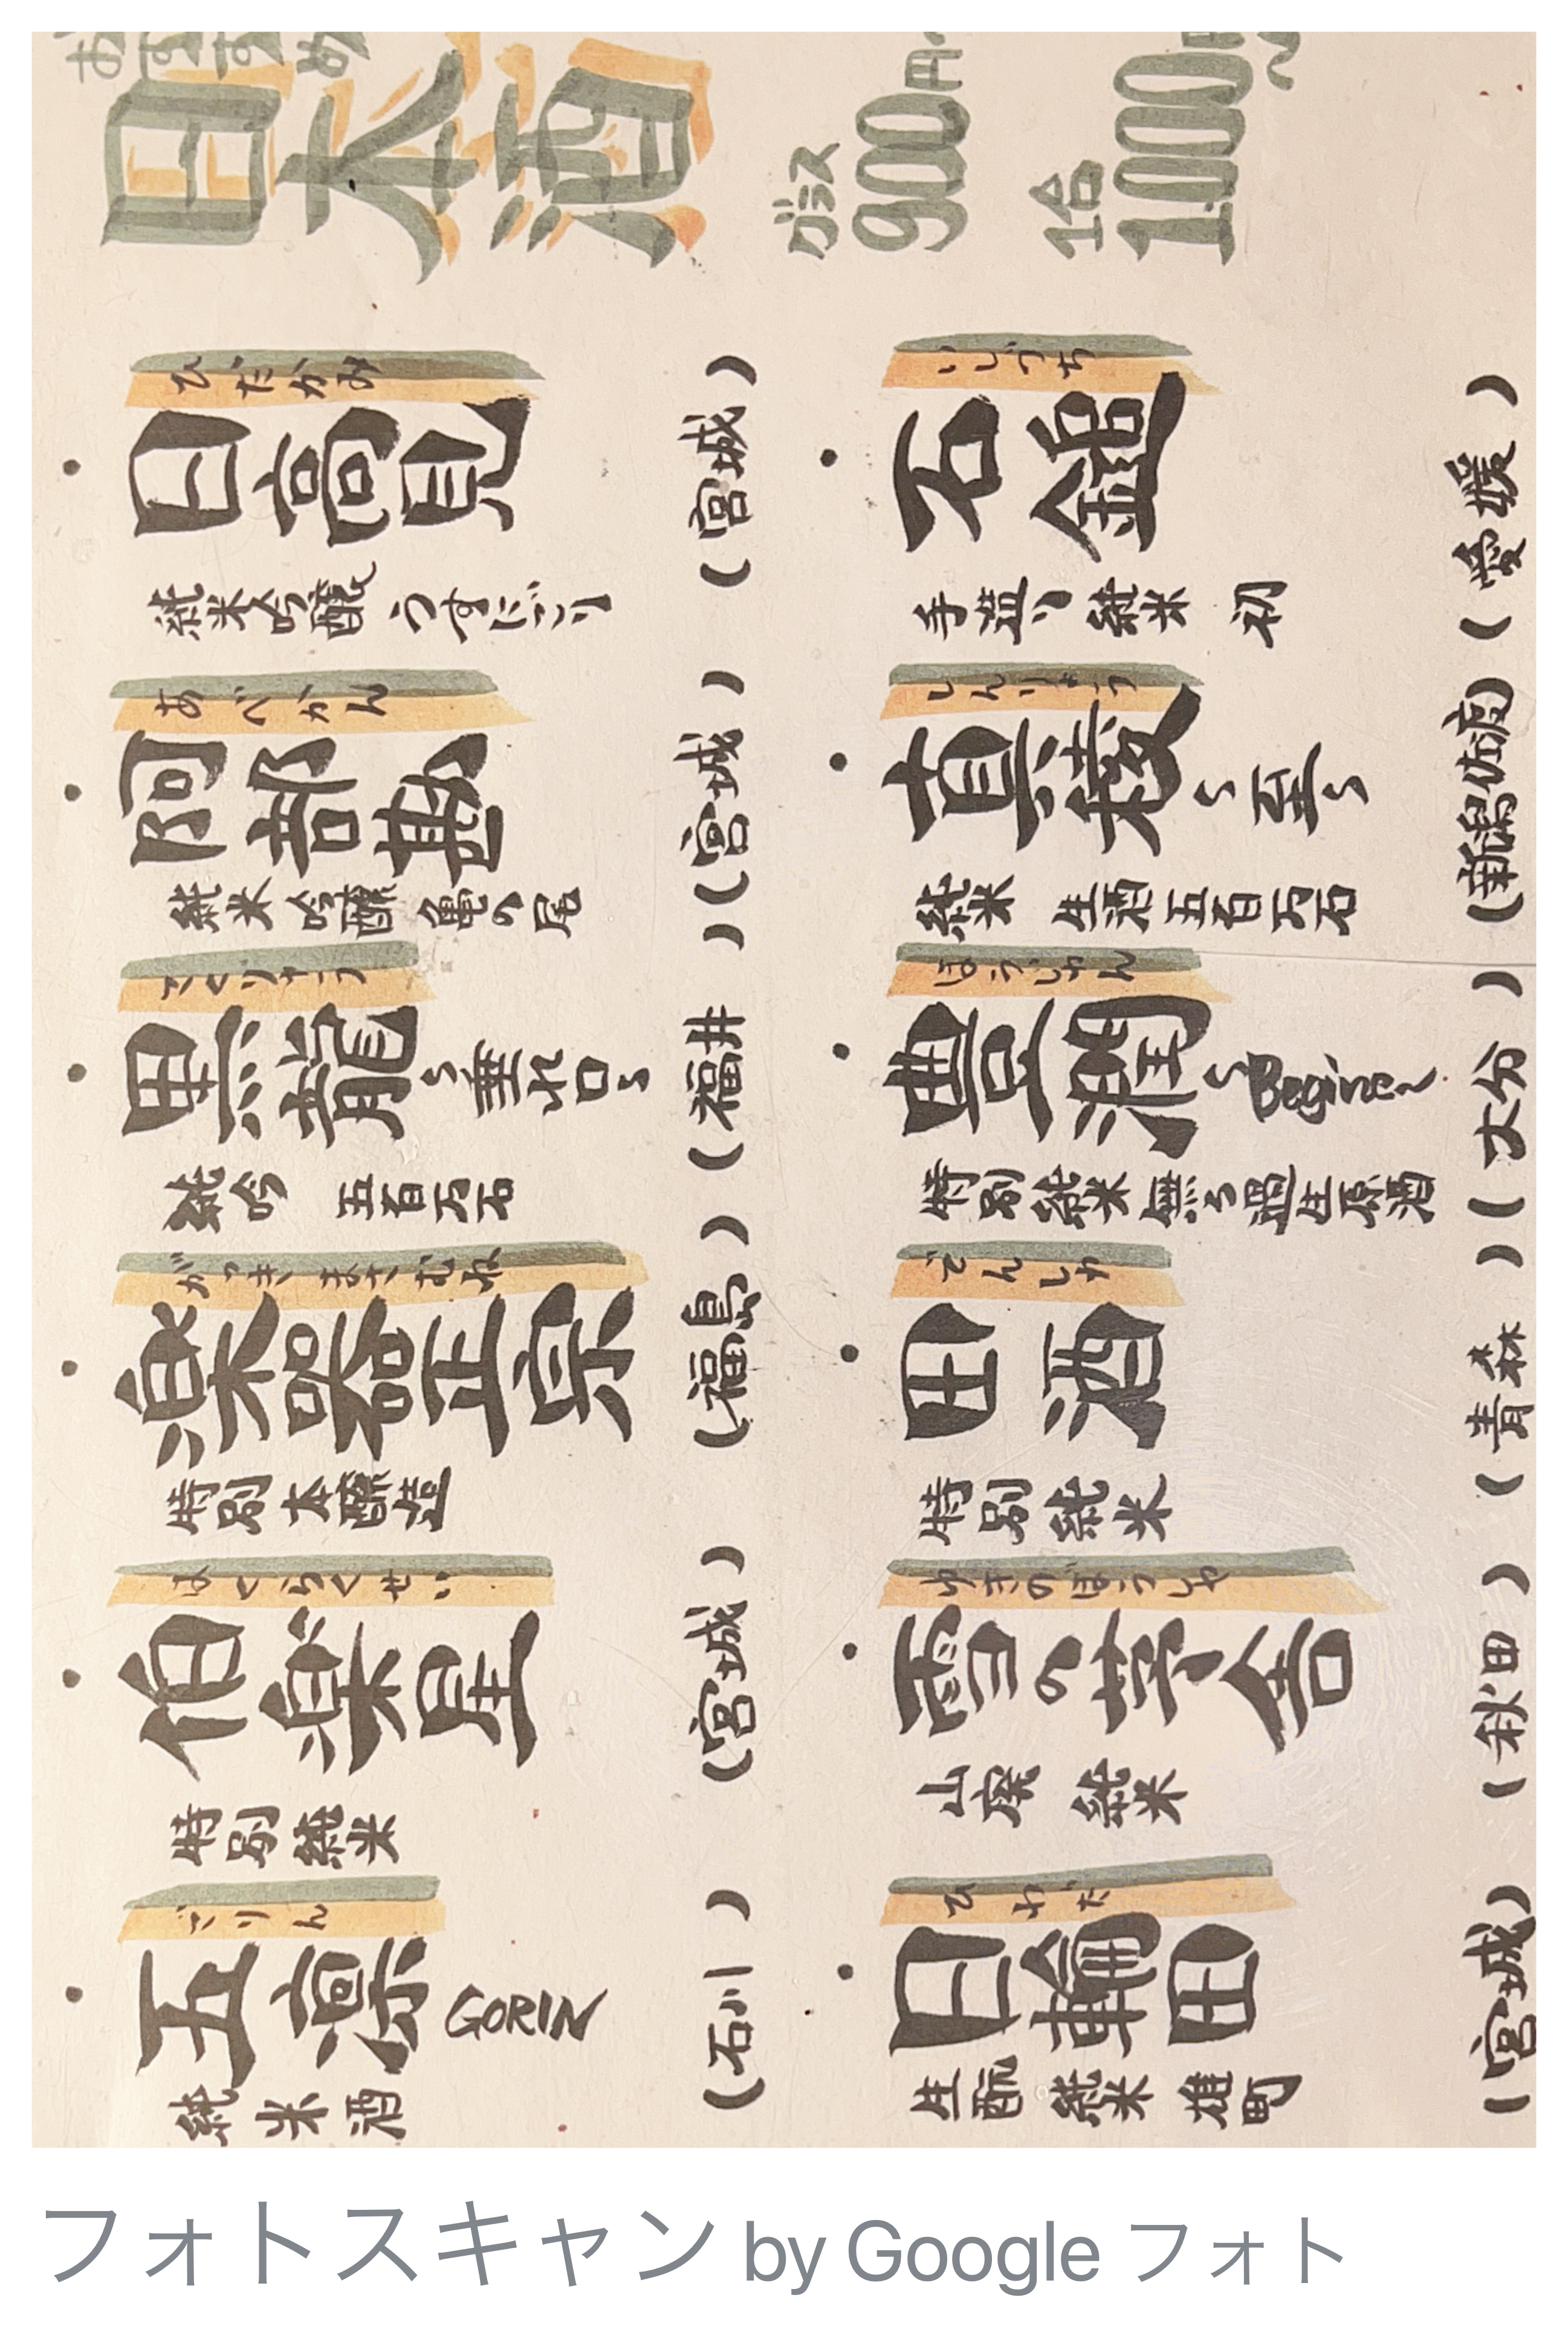 おすすめ
日本酒
グラス 900円
1合 1,000円
ひだかみ
・日高見 (宮城)
純米吟醸 うすにごり
あべかん
・阿部勘 (宮城)
純米吟醸 亀の尾
こくりゅう
・黒龍〜垂れ口〜 (福井)
純吟 五百万石
がっきまさむね
・楽器正宗 (福島)
特別本醸造
はくらくせい
・伯楽星 (宮城)
特別純米
ごりん
・五凛 (石川)
純米酒
いしづち
・石鎚 (愛媛)
手造り純米 初
しんりょう
・真稜〜至〜 (新潟佐渡)
純米 生酒五百万石
ほうじゅん
・豊潤 (大分)
特別純米無ろ過生原酒
でんしゅ
・田酒 (青森)
特別純米
ゆきのぼうしゃ
・雪の茅舎 (秋田)
山廃 純米
ひわた
・日輪田 (宮城)
生酛 純米 雄町
フォトスキャン by Google フォト